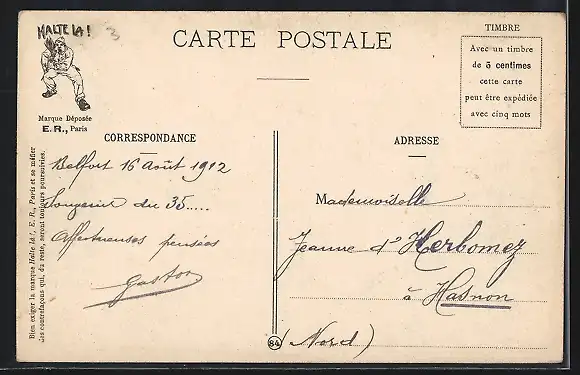 HALTE LA !
3
CARTE POSTALE
TIMBRE
Avec un timbre
de 5 centimes
cette carte
peut être expédiée
avec cinq mots
Marque Déposée
E. R., Paris
Bien exiger la marque Halte là !, E. R., Paris et se méfier
des contrefaçons qui, du reste, seront toujours poursuivies.
CORRESPONDANCE
Belfort 16 Août 1912
Songerie du 35.....
Affectueuses pensées
Gaston
ADRESSE
Mademoiselle
Jeanne d'Herbomez
à Hasnon
(Nord)
84